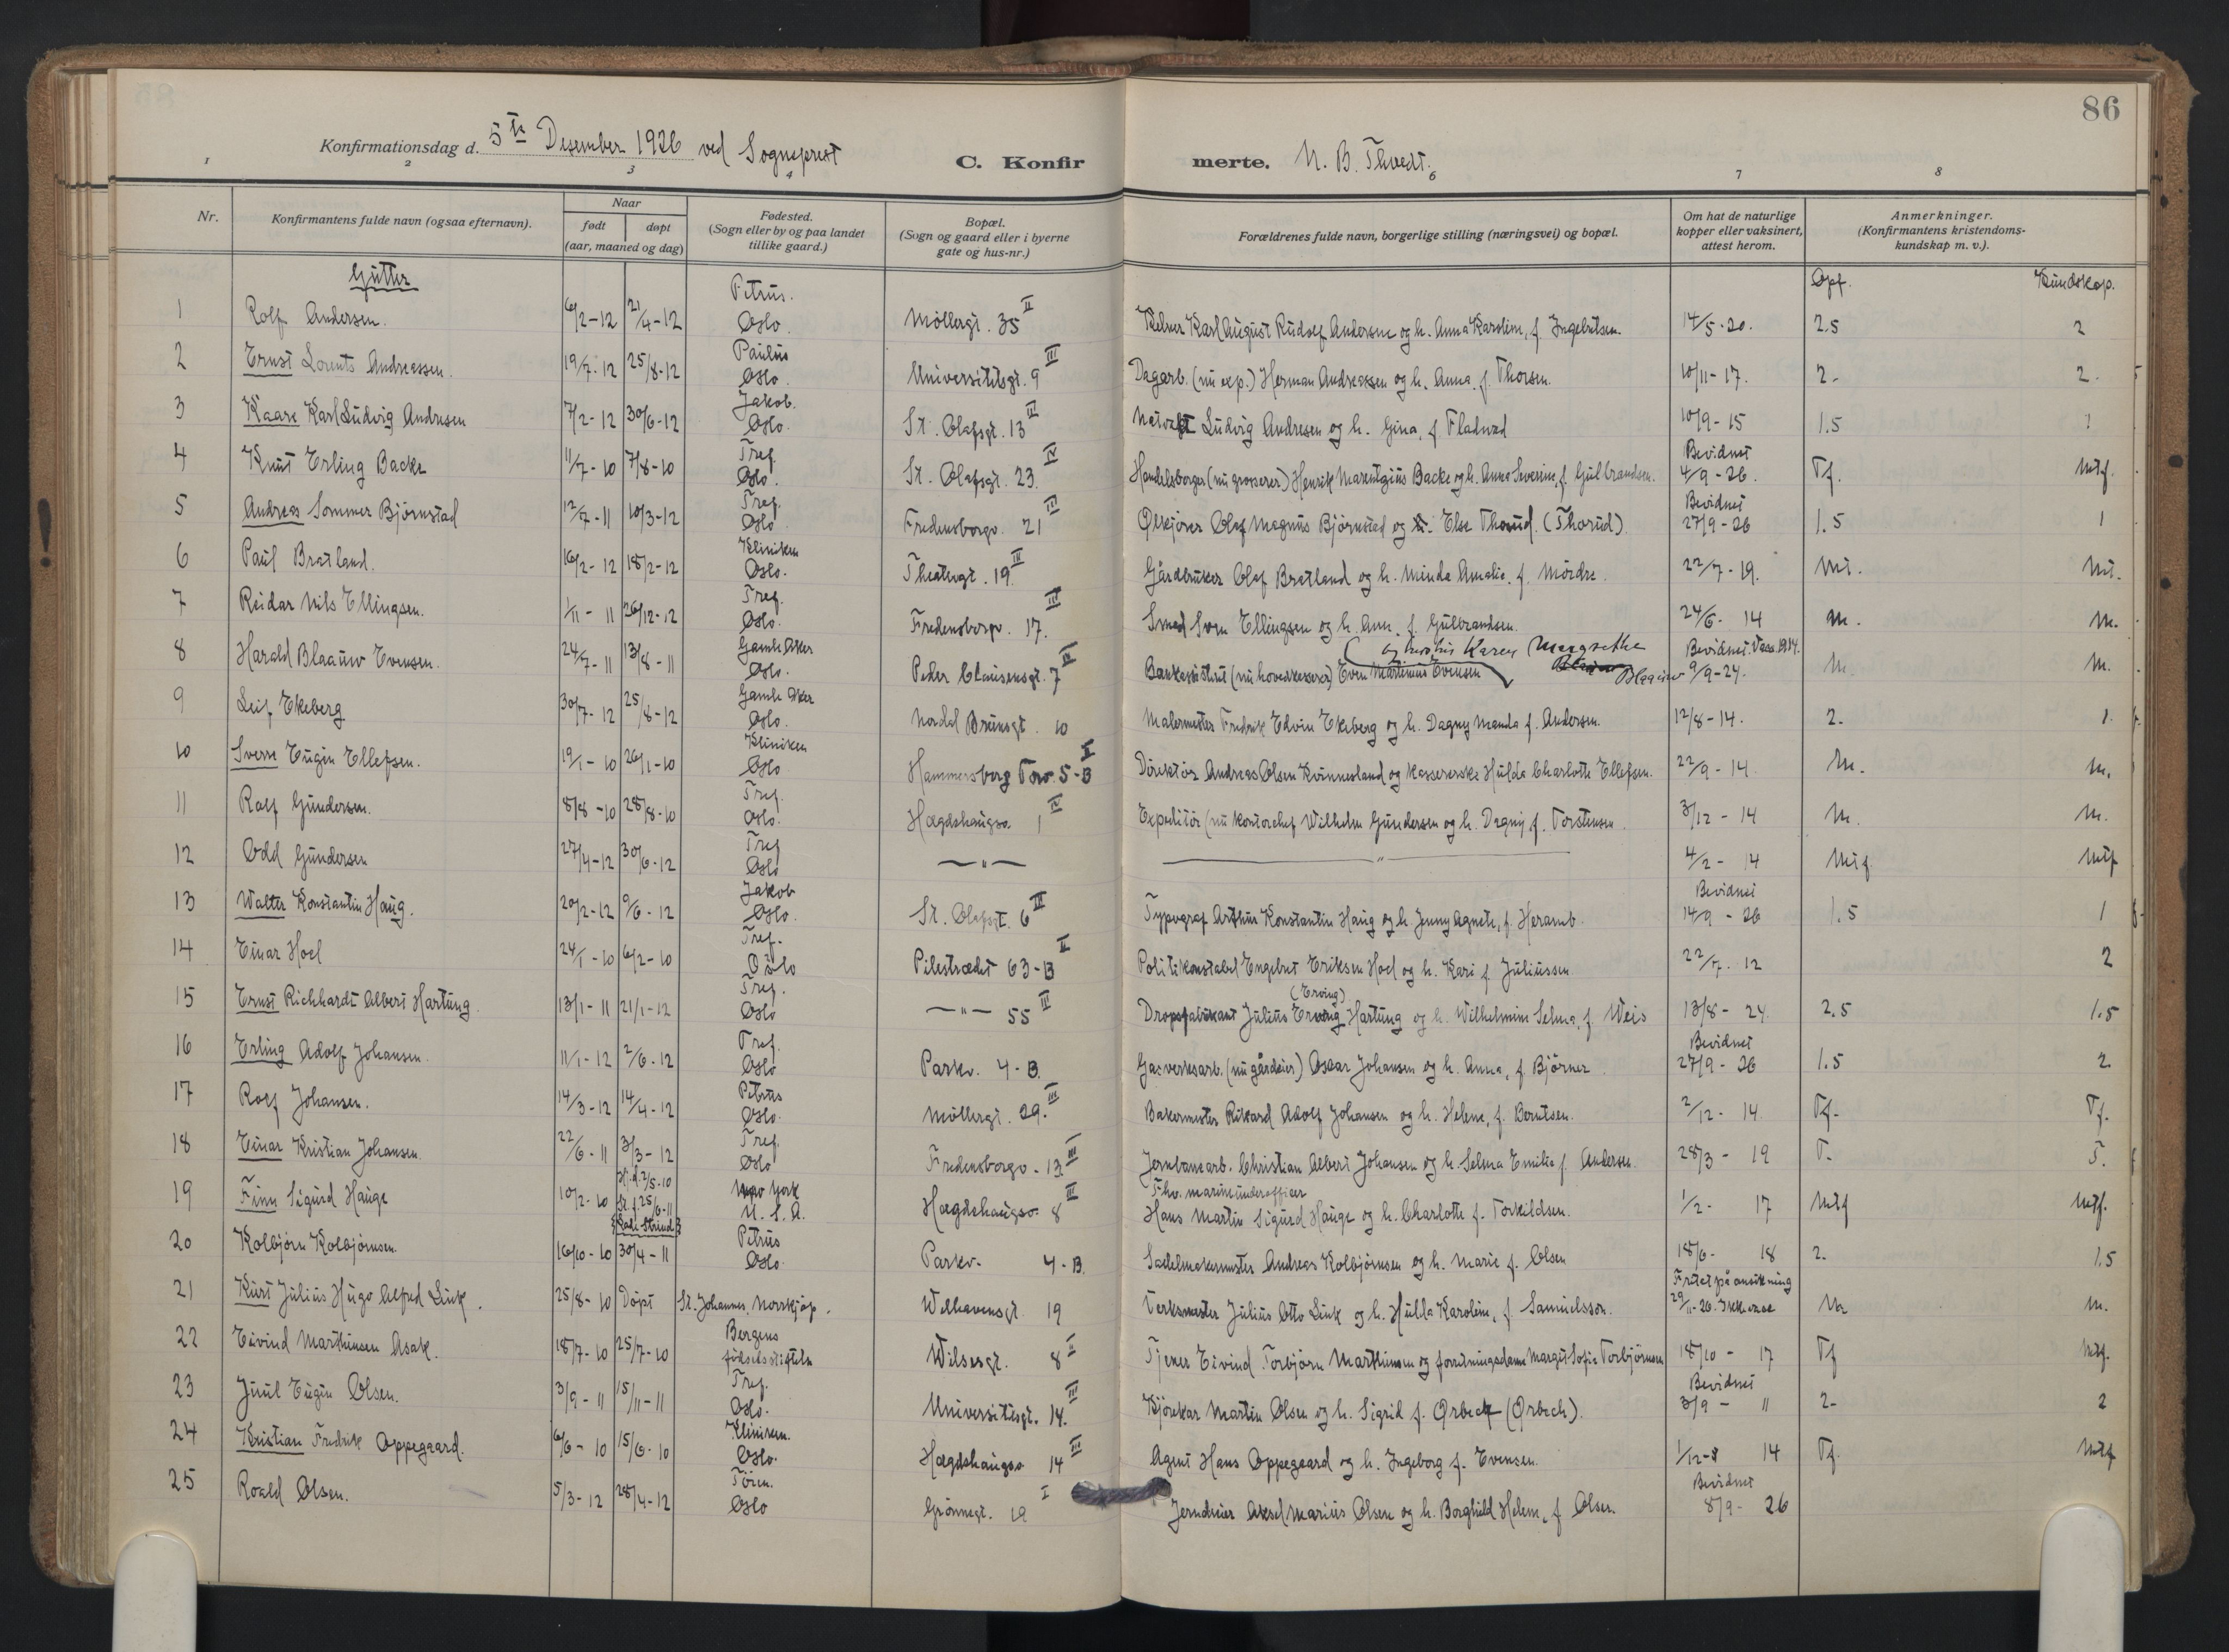 86
Konfirmationsdag d. 5te Desember 1926 ved Sogneprest
C. Konfirmerte. N. B. Thvedt.
1 2 3 4 6 7 8
Nr.
Konfirmantens fulde navn (ogsaa efternavn).
Naar
født
døpt
(aar, maaned og dag)
Fødested.
(Sogn eller by og paa landet
tillike gaard.)
Bopæl.
(Sogn og gaard eller i byerne
gate og hus-nr.)
Forældrenes fulde navn, borgerlige stilling (næringsvei) og bopæl.
Om hat de naturlige
kopper eller vaksinert,
attest herom.
Anmerkninger.
(Konfirmantens kristendoms-
kundskap m. v.).
Gutter
Opf. Kundskap.
1 Rolf Andersen. 6/2-12 21/4-12 Petrus. Oslo. Møllergt. 35 II Kelner Karl August Rudolf Andersen og h. Anna Karoline, f. Ingebretsen. 14/5-20. 2.5 2
2 Ernst Lorents Andreassen. 19/7-12 25/8-12 Paulus Oslo. Universitetsgt. 9 III Dagarb. (nu exp.) Herman Andreassen og h. Anna f. Thorsen. 10/11-17. 2- 2.
3 Kaare Karl Ludvig Andresen 7/2-12 30/6-12 Jakob. Oslo. St. Olafsgt. 13 III Ludvig Andresen og h. Gina, f. Fladved 10/9-15 1.5 1
4 Knut Erling Backe 11/7-10 7/8-10 Tref. Oslo. St. Olafsgt. 23. IV Handelsborger (nu grosserer) Henrik Backe og h. Anna Severine, f. Gulbrandsen. Bevidnet 4/9-26. Tf. Mtf.
5 Andreas Sommer Bjørnstad 12/7-11 10/3-12 Tref. Oslo Fredensborgv. 21 III Ølkjører Olaf Magnus Bjørnstad og h. Else Thorud. (Thorud). Bevidnet 27/9-26 1.5 1
6 Paul Bratland. 16/2-12 18/2-12 Kliniken Oslo. Theatergt. 19 III Gårdbruker Olaf Bratland og h. Minda Amalie, f. Mørdre. 22/7-19. Mt. Mt.
7 Reidar Nils Ellingsen. 1/11-11 26/12-12 Tref. Oslo. Fredensborgv. 17. III Smed Sven Ellingsen og h. Ann. f. Gulbrandsen. 24/6-14 M. M.
8 Harald Blaauw Evensen. 24/7-11 13/8-11 Gamle Aker Oslo. Peder Clausensgt. 7 IV Bankassistent (nu hovedkasserer) Even Martinius Evensen og hustru Karen Margrethe Blaauw Bevidnet. Vacc. 1914. 9/9-24. M. M.
9 Leif Ekeberg 30/7-12 25/8-12 Gamle Aker Oslo. Nordal Brunsgt. 10 Malermester Fredrik Edvin Ekeberg og h. Dagny Manda f. Andersen. 12/8-14. 2- 1.
10 Sverre Eugin Ellefsen. 19/1-10 26/1-10 Kliniken Oslo Hammersborg Torv 5-B II Direktør Andreas Olsen Kvinnesland og kassererske Hulda Charlotte Ellefsen. 22/9-14. M. M.
11 Rolf Gundersen. 8/8-10 28/8-10 Tref. Oslo. Hægdehaugsv. 1 IV Expeditør (nu kontorchef Wilhelm Gundersen og h. Dagny f. Torstensen. 3/12-14 M. M.
12 Odd Gundersen 27/4-12 30/6-12 Tref Oslo —"— —"— 4/2-14 Mtf. Mtf
13 Walter Konstantin Haug. 20/2-12 9/6-12 Jakob Oslo. St. Olafsgt. 6 III Typograf Arthur Konstantin Haug og h. Jenny Agnete, f. Heramb. Bevidnet 14/9-26 1.5 1
14 Einar Hoel 24/1-10 6/2-10 Tref. Oslo Pilestrædet 63-B II Politikonstabel Engebret Eriksen Hoel og h. Kari f. Juliussen 22/7-12 2
15 Ernst Richhardt Albert Hartung. 13/1-11 21/1-12 Tref. Oslo —"— 55 III Dropsfabrikant Julius Erving (Erving) Hartung og h. Wilhelmine Selma, f. Weis 13/8-24. 2.5 1.5
16 Erling Adolf Johansen. 11/1-12 2/6-12 Tref. Oslo Parkv. 4-B. Gasverksarb. (nu gårdeier) Oscar Johansen og h. Anna, f. Bjørner. Bevidnet 27/9-26 1.5 2.
17 Rolf Johansen. 14/3-12 14/4-12 Petrus Oslo. Møllergt. 29. III Bakermester Rikard Adolf Johansen og h. Helene, f. Berntsen. 2/12-14. Tf- Tf.
18 Einar Kristian Johansen. 22/6-11 3/3-12 Tref. Oslo Fredensborgv. 13 III Jernbanearb. Christian Albert Johansen og h. Selma Emilie f. Andersen. 28/3-19 T- T.
19 Finn Sigurd Hauge 10/2-10 Hj.d. 2/5-10 St. f. 25/6-11 New York U. S. A. Hægdehaugsv. 8 III Fhv. marineunderofficer Hans Martin Sigurd Hauge og h. Charlotte f. Torkildsen. 1/2-17 Mtf Mtf.
20 Kolbjørn Kolbjørnsen. 16/10-10 30/4-11 Petrus Oslo. Parkv. 4-B. Sadelmakermester Andreas Kolbjørnsen og h. Marie f. Olsen 18/6-18 2. 1.5
21 Kurt Julius Hugo Alfred Link. 25/8-10 Døpt St. Johannes, Norrkjøp. Welhavensgt. 19 Verksmester Julius Otto Link og h. Hulla Karoline, f. Samuelsson. Fritat på ansøkning 29/11-26. M M.
22 Eivind Marthinsen Asak. 18/7-10 25/7-10 Bergens fødselsstiftelse Wilsesgt. 8 II Tjener Eivind Torbjørn Marthinsen og forretningsdame Margit Sofie Torbjørnsen 18/10-17 Tf Mtf.
23 Juul Eugin Olsen. 3/9-11 15/11-11 Tref. Oslo. Universitetsgt. 14. III Kjørekar Martin Olsen og h. Sigrid f. Ørbeck (Ørbech). Bevidnet 3/9-11 2- 2
24 Kristian Fredrik Oppegaard. 6/6-10 15/6-10 Kliniken. Oslo. Hægdehaugsv 14 III Agent Hans Oppegaard og h. Ingeborg f. Evensen. 1/12-14 Tf. Mtf
25 Roald Olsen. 5/3-12 28/4-12 Tøien. Oslo Grønnegt. 19 I Jerndreier Aksel Marius Olsen og h. Borghild Helene, f. Olsen. Bevidnet 8/9-26